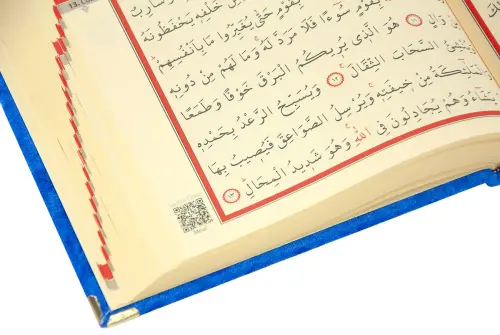 سَارِبٌ
خَلْفِهِ يَحْفَظُونَهُ
بِقَوْمٍ حَتّٰى يُغَيِّرُوا مَا بِاَنْفُسِهِمْ
بِقَوْمٍ سُوءًا فَلَا مَرَدَّ لَهُ وَمَا لَهُمْ مِنْ دُونِهِ
وَالٍ ﴿١١﴾ هُوَ الَّذِي يُرِيكُمُ الْبَرْقَ خَوْفًا وَطَمَعًا
وَيُنْشِئُ السَّحَابَ الثِّقَالَ ﴿١٢﴾ وَيُسَبِّحُ الرَّعْدُ بِحَمْدِهِ
مِنْ خِيفَتِهِ وَيُرْسِلُ الصَّوَاعِقَ فَيُصِيبُ بِهَا
وَهُمْ يُجَادِلُونَ فِي اللّٰهِ وَهُوَ شَدِيدُ الْمِحَالِ ﴿١٣﴾